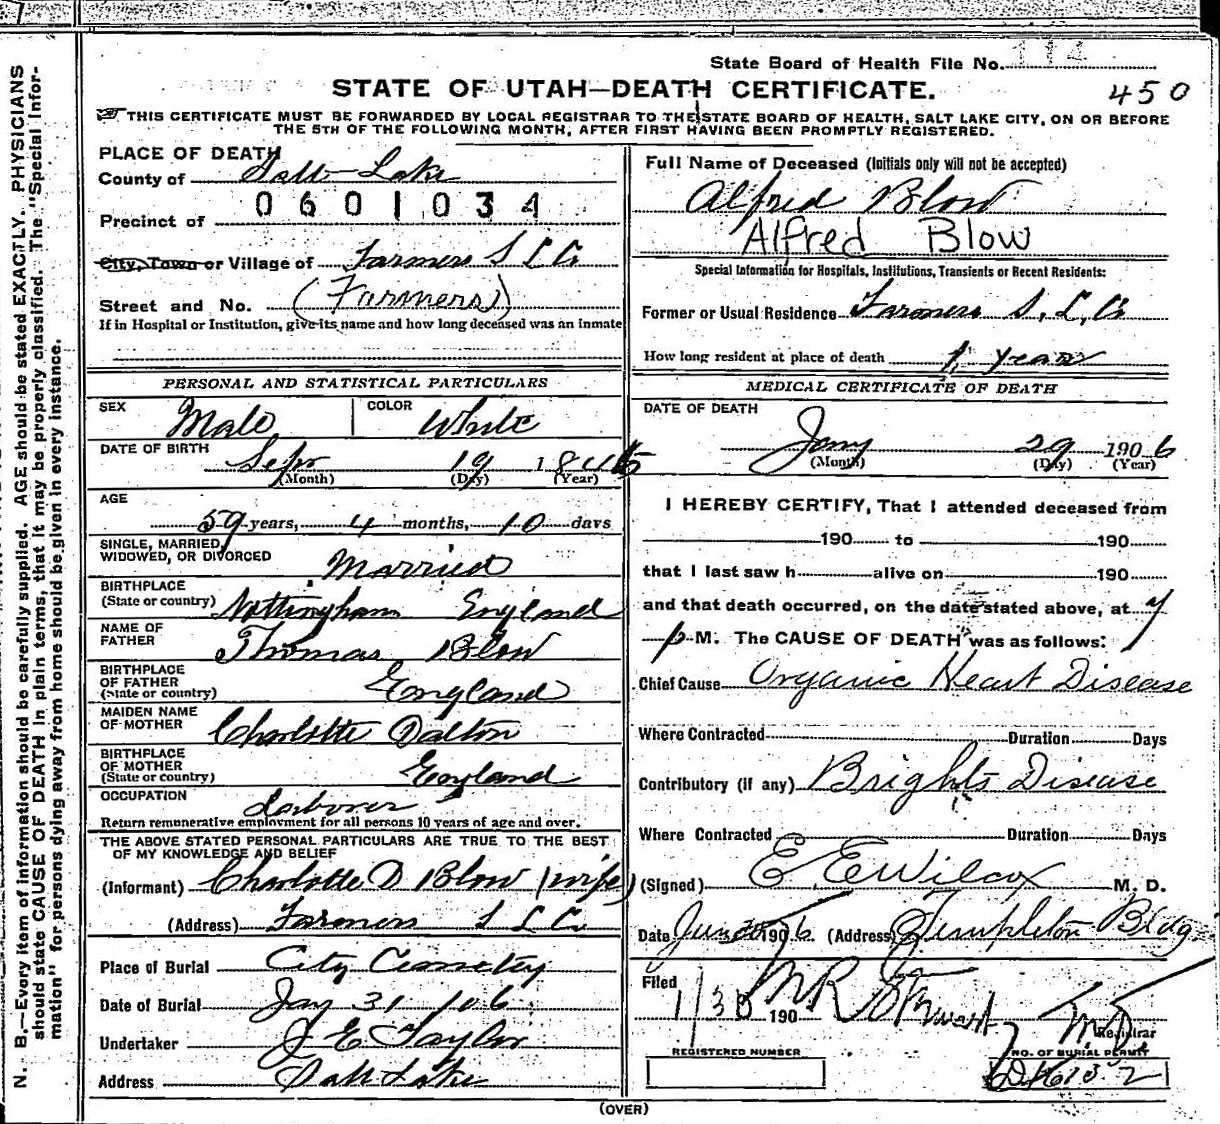 State Board of Health File No. 114
STATE OF UTAH—DEATH CERTIFICATE.
450
THIS CERTIFICATE MUST BE FORWARDED BY LOCAL REGISTRAR TO THE STATE BOARD OF HEALTH, SALT LAKE CITY, ON OR BEFORE
THE 5TH OF THE FOLLOWING MONTH, AFTER FIRST HAVING BEEN PROMPTLY REGISTERED.
PLACE OF DEATH
County of Salt Lake
0601034
Precinct of
City, Town or Village of Farmers S L Co
Street and No. (Farmers)
If in Hospital or Institution, give its name and how long deceased was an inmate
PERSONAL AND STATISTICAL PARTICULARS
SEX Male COLOR White
DATE OF BIRTH Sepr 19
(Month) (Day) (Year)
AGE
59 years, 4 months, 10 days
SINGLE, MARRIED,
WIDOWED, OR DIVORCED Married
BIRTHPLACE
(State or country) Nottingham England
NAME OF
FATHER Thomas Blow
BIRTHPLACE
OF FATHER
(State or country) England
MAIDEN NAME
OF MOTHER Charlotte Dalton
BIRTHPLACE
OF MOTHER
(State or country) England
OCCUPATION Laborer
Return remunerative employment for all persons 10 years of age and over.
THE ABOVE STATED PERSONAL PARTICULARS ARE TRUE TO THE BEST
OF MY KNOWLEDGE AND BELIEF
(Informant) Charlotte D Blow (wife)
(Address) Farmers S L Co
Place of Burial City Cemetry
Date of Burial Jany 31 /06
Undertaker J E Taylor
Address Salt Lake
Full Name of Deceased (Initials only will not be accepted)
Alfred Blow
Alfred Blow
Special Information for Hospitals, Institutions, Transients or Recent Residents:
Former or Usual Residence Farmers S. L. Co
How long resident at place of death 1 year
MEDICAL CERTIFICATE OF DEATH
DATE OF DEATH
Jany 29 1906
(Month) (Day) (Year)
I HEREBY CERTIFY, That I attended deceased from
190 to 190
that I last saw h alive on 190
and that death occurred, on the date stated above, at 7
p M. The CAUSE OF DEATH was as follows:
Chief Cause Organic Heart Disease
Where Contracted Duration Days
Contributory (if any) Brights Disease
Where Contracted Duration Days
(Signed) E E Wilcox M. D.
Date 1906 (Address) Templeton Bldg
Filed
1/30 190 Registrar
REGISTERED NUMBER
NO. OF BURIAL PERMIT
(OVER)
N. B.—Every item of information should be carefully supplied. AGE should be stated EXACTLY. PHYSICIANS
should state CAUSE OF DEATH in plain terms, that it may be properly classified. The "Special Infor-
mation" for persons dying away from home should be given in every instance.